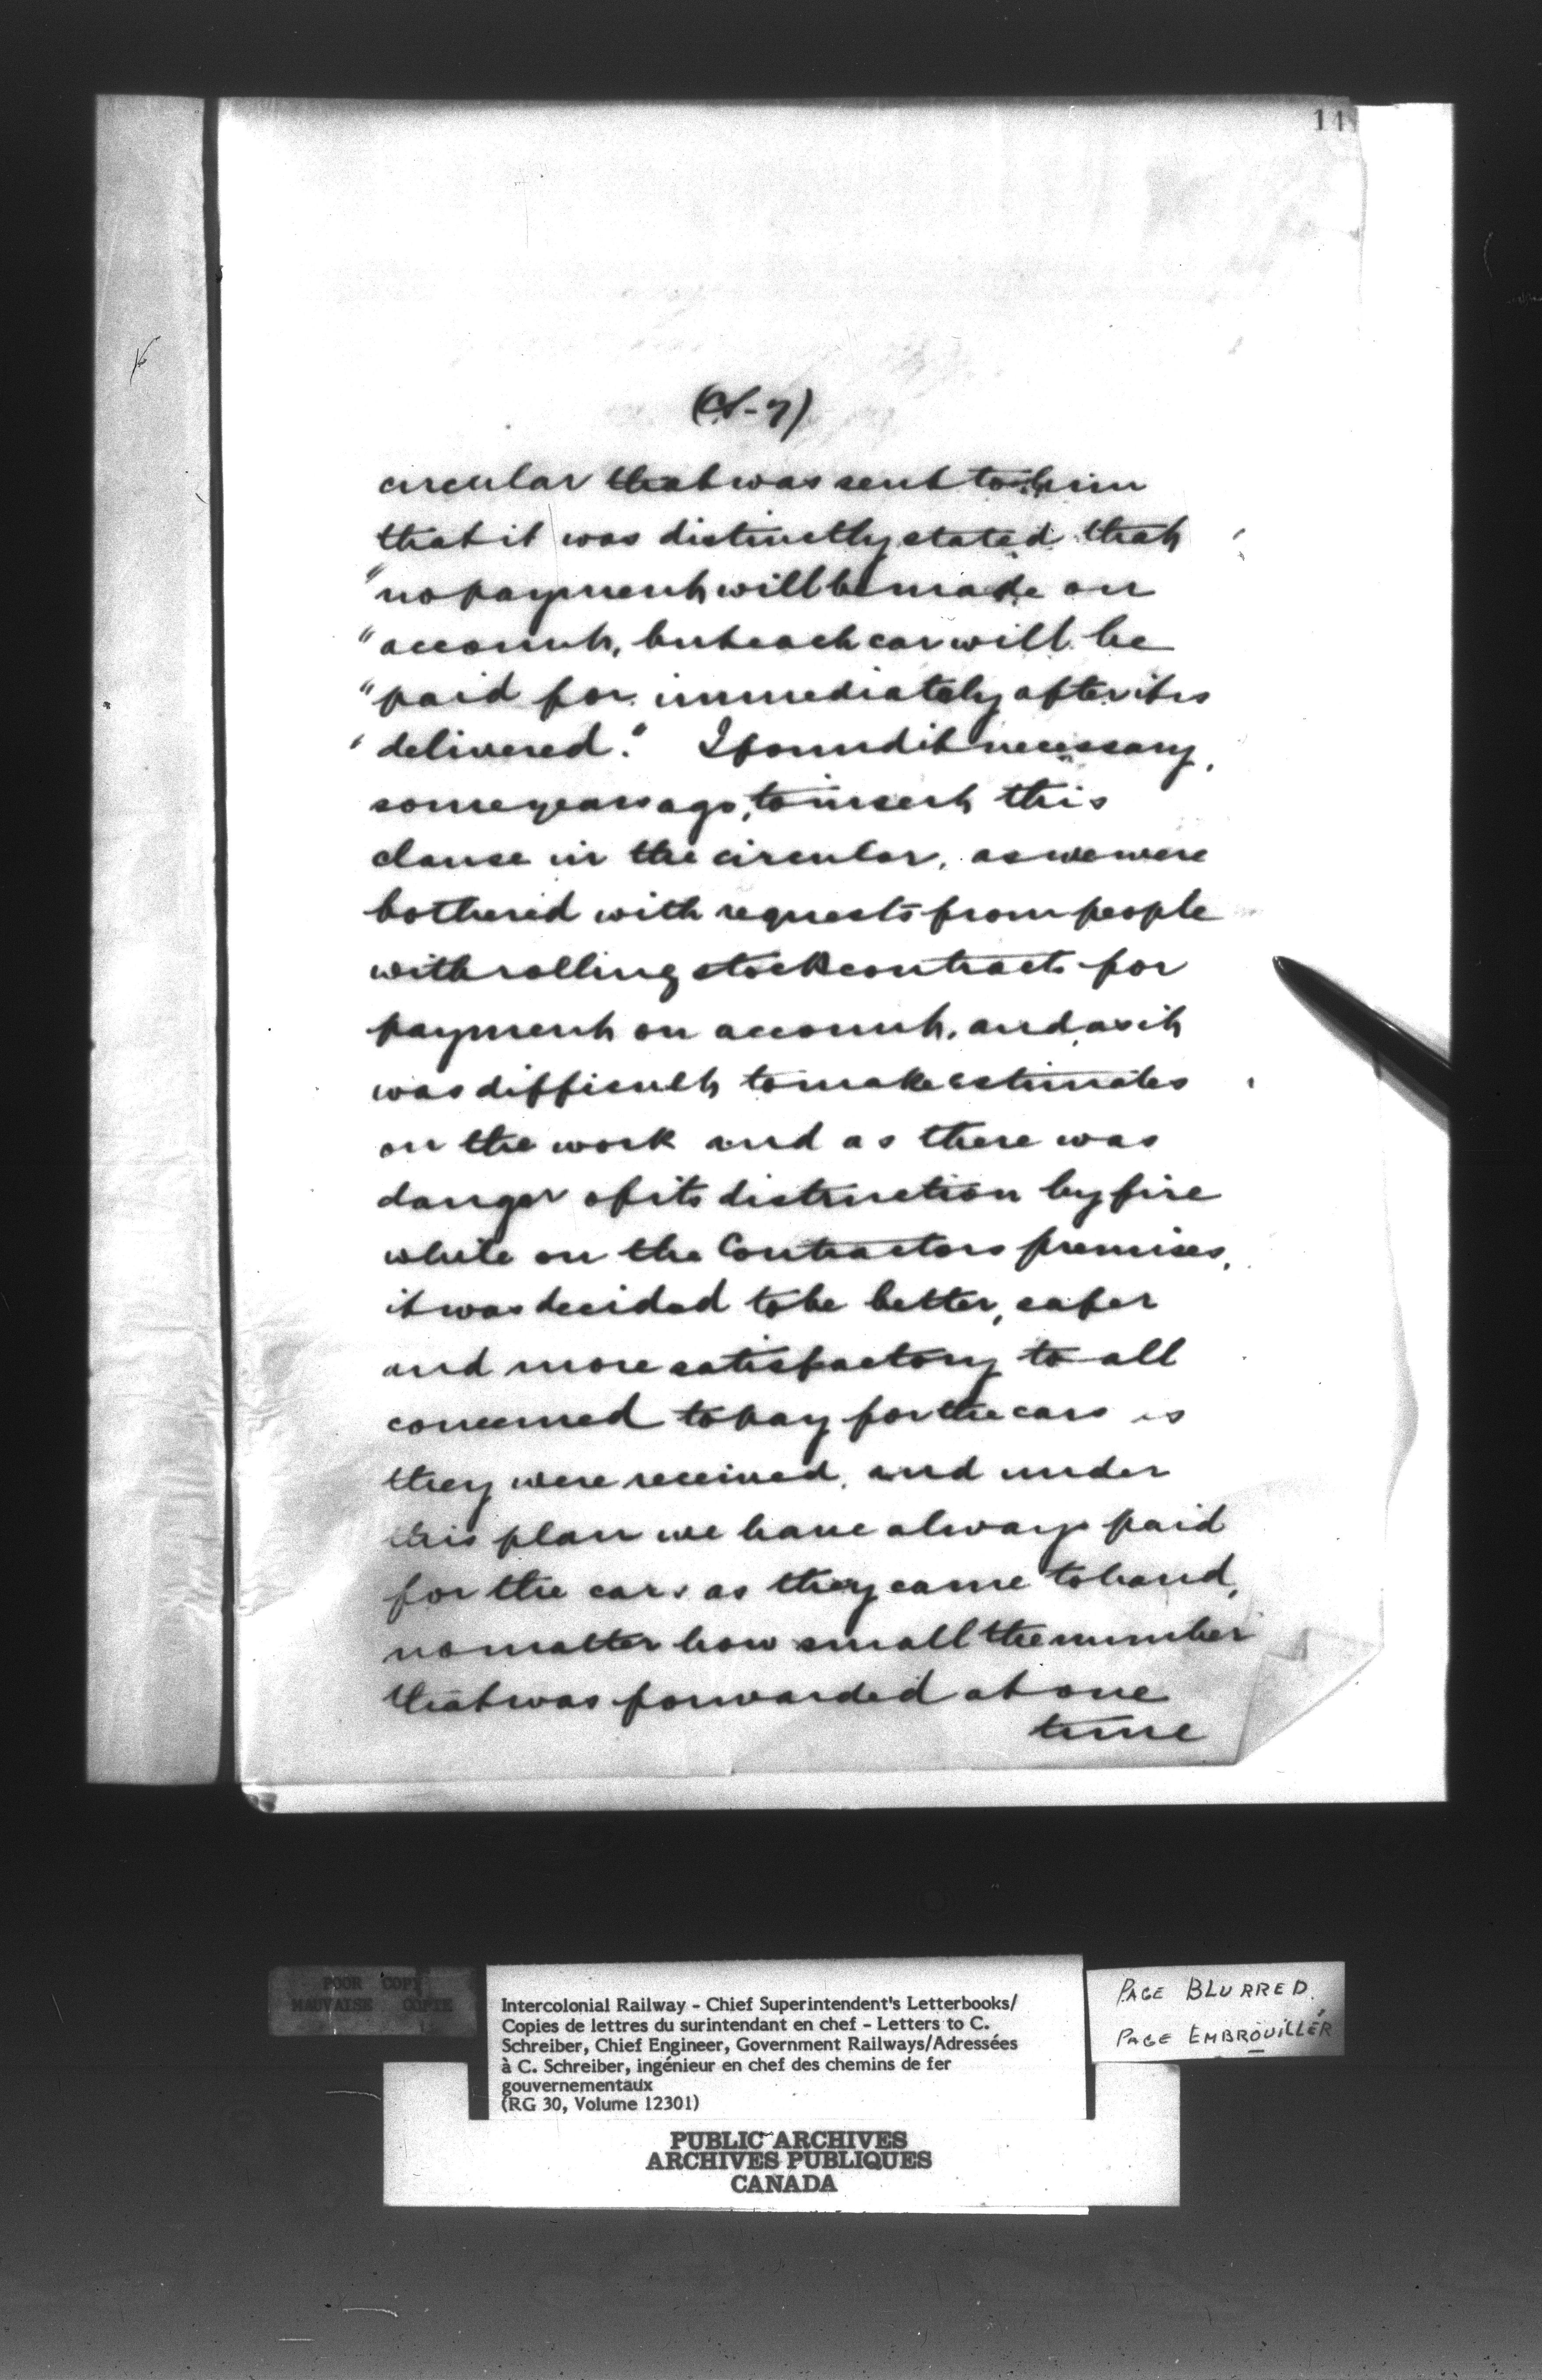 11
circular that was sent to him
that it was distinctly stated that
"no payment will be made on
"account, but each car will be
"paid for immediately after it is
"delivered." I found it necessary,
some years ago, to insert this
clause in the circular, as we were
bothered with requests from people
with rolling stock contracts for
payment on account, and, as it
was difficult to make estimates
on the work and as there was
danger of its distruction by fire
while on the Contractors premises,
it was decided to be better, safer
and more satisfactory to all
concerned to pay for the cars as
they were received, and under
this plan we have always paid
for the cars as they came to hand,
no matter how small the number
that was forwarded at one
time
POOR COPY
MAUVAISE COPIE
Intercolonial Railway - Chief Superintendent's Letterbooks/
Copies de lettres du surintendant en chef - Letters to C.
Schreiber, Chief Engineer, Government Railways/Adressées
à C. Schreiber, ingénieur en chef des chemins de fer
gouvernementaux
(RG 30, Volume 12301)
PAGE BLURRED.
PAGE EMBROUILLÉR
PUBLIC ARCHIVES
ARCHIVES PUBLIQUES
CANADA